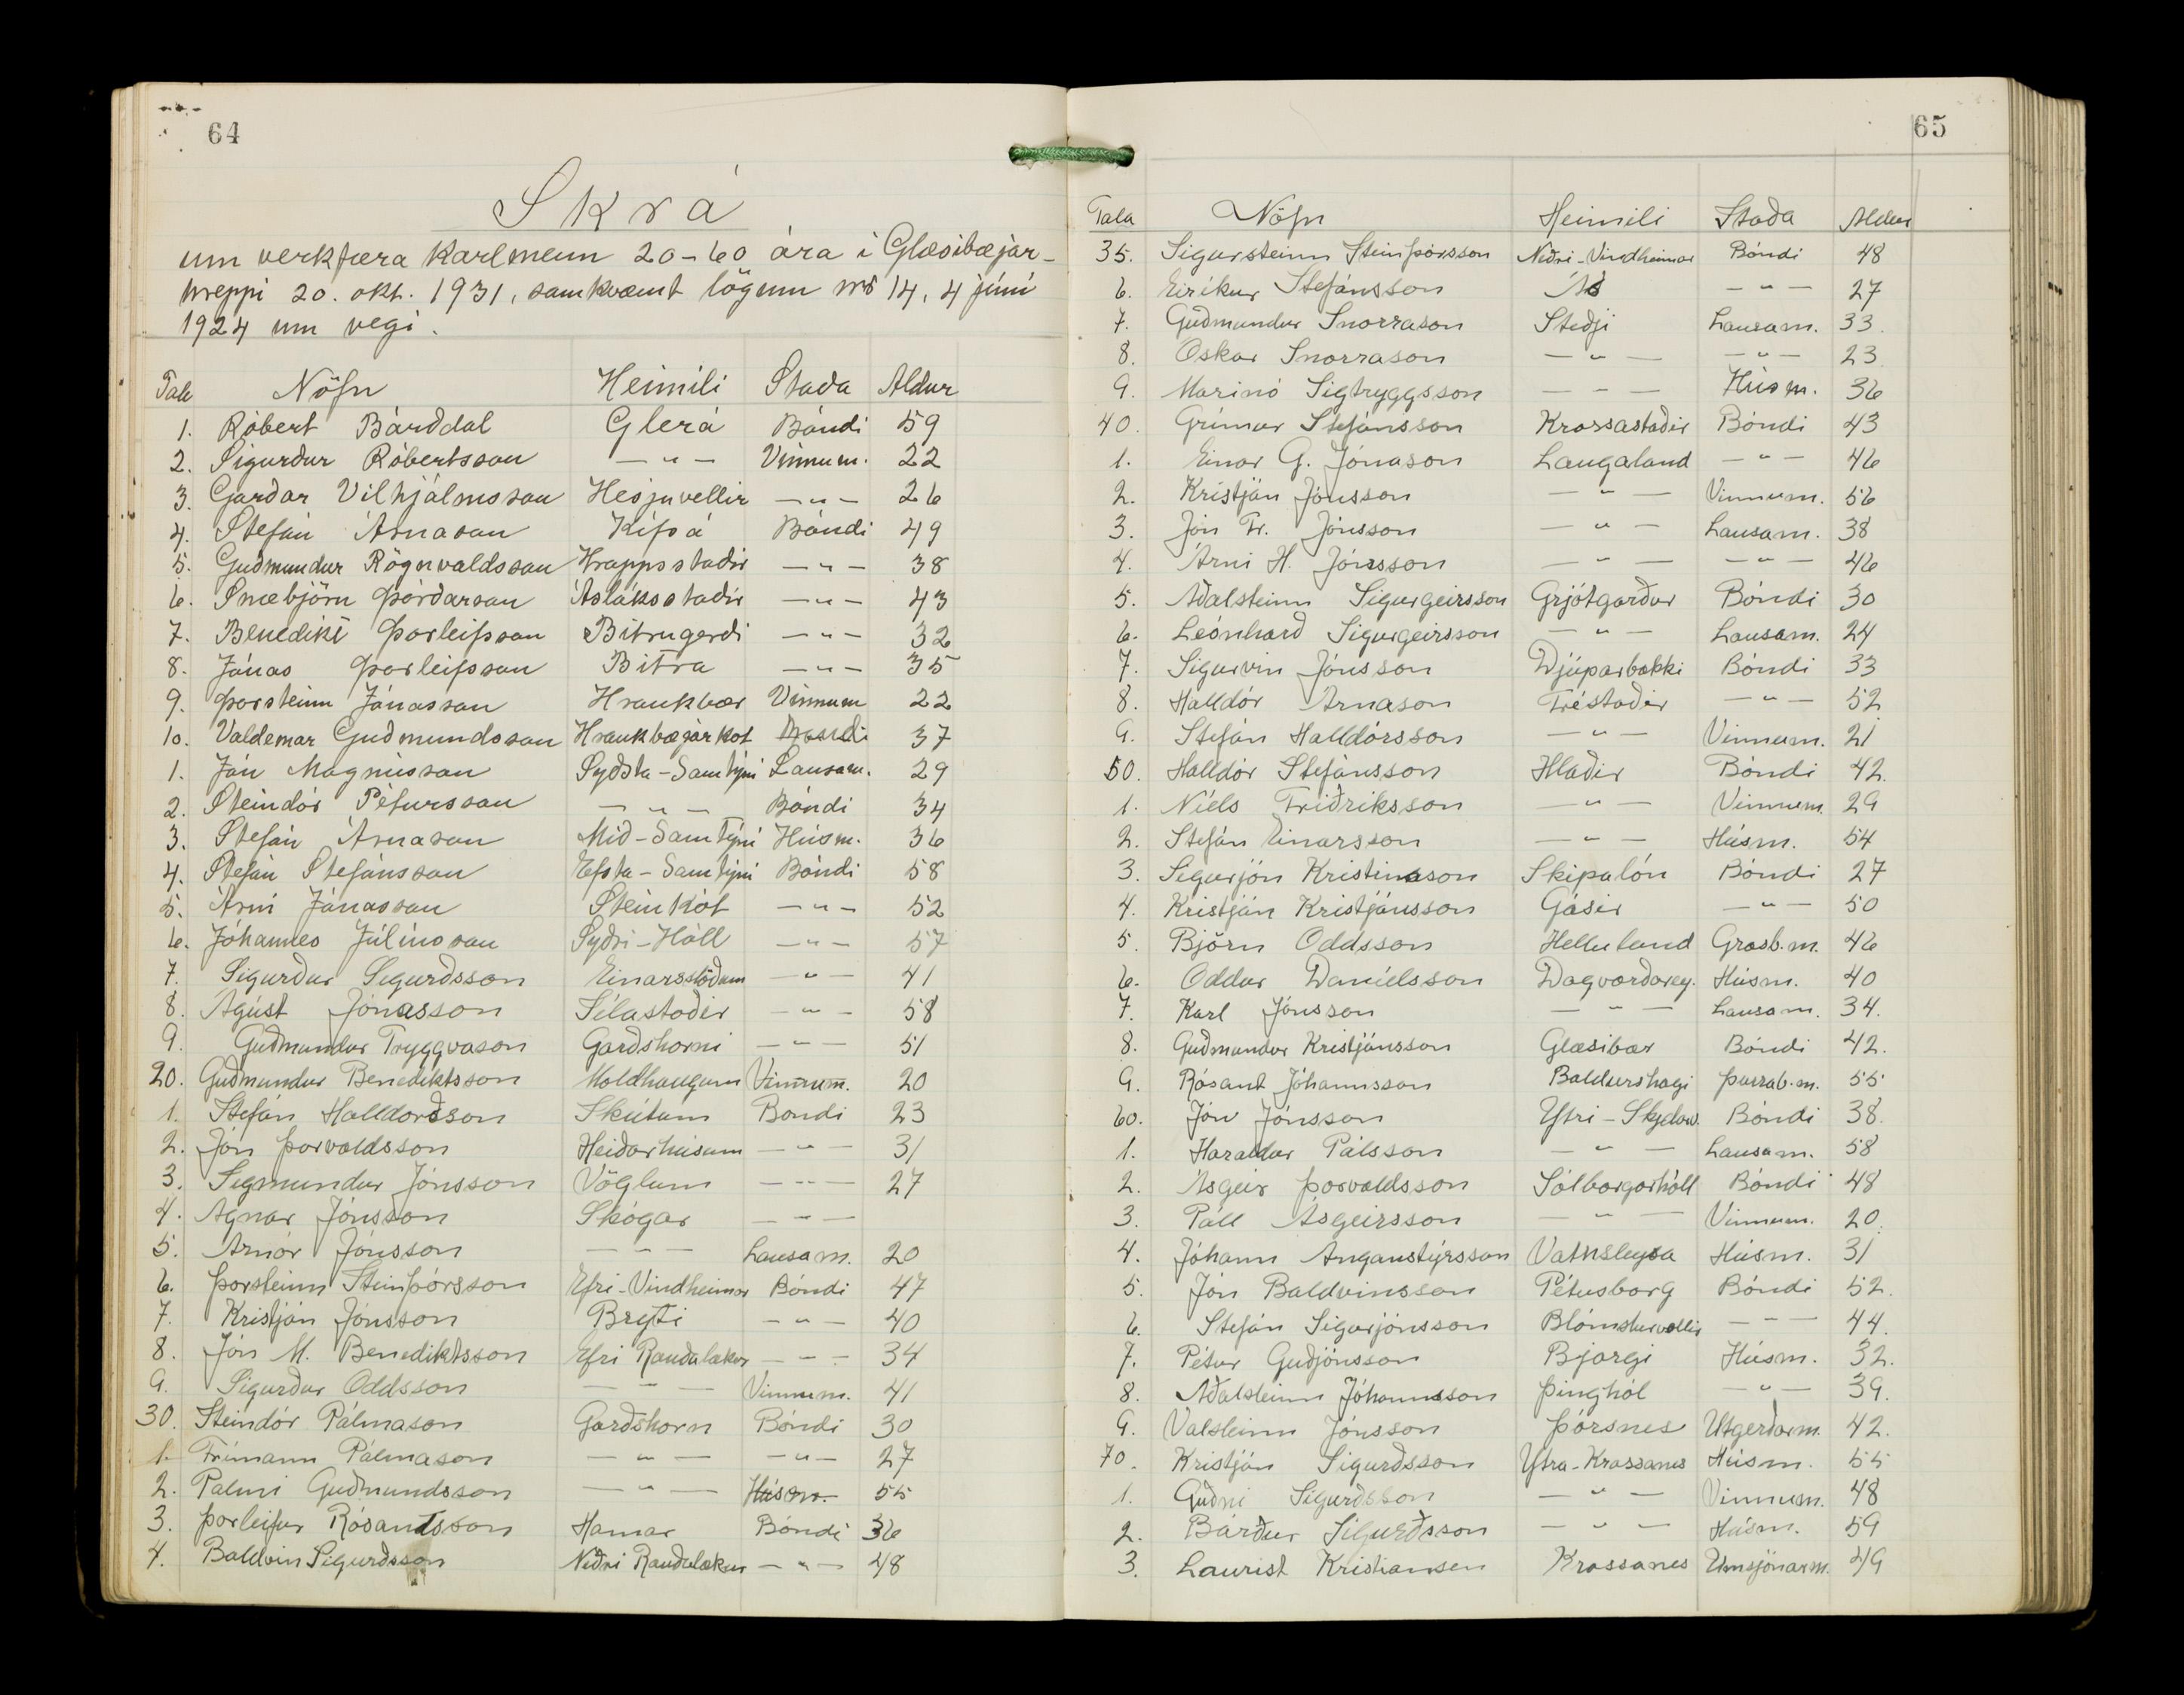 64
Skrá
um verkfæra karlmenn 20-60 ára í Glæsibæjar-
hreppi 20. okt. 1931, samkvæmt lögum nr 14, 4 júní
1924 um vegi.
Tala Nöfn Heimili Staða Aldur
1. Róbert Bárðdal Glerá Bóndi 59
2. Sigurður Róbertsson — " — Vinnum. 22
3. Garðar Vilhjálmsson Hesjuvellir — " — 26
4. Stefán Árnason Kífsá Bóndi 49
5. Guðmundur Rögnvaldsson Hrappsstaðir — " — 38
6. Snæbjörn Þórðarson Ásláksstaðir — " — 43
7. Benedikt Þorleifsson Bitrugerði — " — 32
8. Jónas Þorleifsson Bitra — " — 35
9. Þorsteinn Jónasson Hraukbær Vinnum 22
10. Valdemar Guðmundsson Hraukbæjarkot Bóndi 37
1. Jón Magnússon Syðsta-Samtýni Lausam. 29
2. Steindór Pétursson — " — Bóndi 34
3. Stefán Árnason Mið-Samtýni Húsm. 36
4. Stefán Stefánsson Efsta-Samtýni Bóndi 58
5. Árni Jónasson Steinkot — " — 52
6. Jóhannes Júlíusson Syðri-Hóll — " — 57
7. Sigurður Sigurðsson Einarsstöðum — " — 41
8. Ágúst Jónasson Sílastaðir — " — 58
9. Guðmundur Tryggvason Garðshorni — " — 51
20. Guðmundur Benediktsson Moldhaugum Vinnum. 20
1. Stefán Halldorsson Skútum Bondi 23
2. Jón Þorvaldsson Heiðarhúsum — " — 31
3. Sigmundur Jónsson Vöglum — " — 27
4. Agnar Jónsson Skógar — " —
5. Arnór Jónsson — " — Lausam. 20
6. Þorsteinn Steinþórsson Efri-Vindheimar Bóndi 47
7. Kristján Jónsson Bryti — " — 40
8. Jón M. Benediktsson Efri Rauðalækur — " — 34
9. Sigurður Oddsson — " — Vinnum. 41
30. Steindór Pálmason Garðshorn Bóndi 30
1. Frímann Pálmason — " — — " — 27
2. Palmi Guðmundsson — " — Húsm. 55
3. Þorleifur Rósantsson Hamar Bóndi 36
4. Baldvin Sigurðsson Neðri Rauðalækur — " — 48
65
Tala Nöfn Heimili Staða Aldur
35. Sigursteinn Steinþórsson Neðri-Vindheimar Bóndi 48
6. Eiríkur Stefánsson Ás — " — 27
7. Guðmundur Snorrason Steðji Lausam. 33
8. Oskar Snorrason — " — — " — 23
9. Marinó Sigtryggsson — " — Húsm. 36
40. Grímur Stefánsson Krossastaðir Bóndi 43
1. Einar G. Jónason Laugaland — " — 46
2. Kristján Jónsson — " — Vinnum. 56
3. Jón Fr. Jónsson — " — Lausam. 38
4. Árni H. Jónsson — " — — " — 46
5. Aðalsteinn Sigurgeirsson Grjótgarður Bóndi 30
6. Leónhard Sigurgeirsson — " — Lausam. 24
7. Sigurvin Jónsson Djúparbakki Bóndi 33
8. Halldór Árnason Tréstaðir — " — 52
9. Stefán Halldórsson — " — Vinnum. 21
50. Halldór Stefánsson Hlaðir Bóndi 42.
1. Níels Friðriksson — " — Vinnum. 29
2. Stefán Einarsson — " — Húsm. 54
3. Sigurjón Kristinsson Skipalón Bóndi 27
4. Kristján Kristjánsson Gásir — " — 50
5. Björn Oddsson Helluland Grasb.m. 46
6. Oddur Daníelsson Dagvorðarey. Húsm. 40
7. Karl Jónsson — " — Lausam. 34.
8. Guðmundur Kristjánsson Glæsibær Bóndi 42.
9. Rósant Jóhannsson Baldurshagi Þurrab.m. 55
60. Jón Jónsson Ytri-Skjaldarv. Bóndi 38.
1. Haraldur Pálsson — " — Lausam. 58
2. Ásgeir Þorvaldsson Sólborgarhóll Bóndi 48
3. Páll Ásgeirsson — " — Vinnum. 20.
4. Jóhann Angantýrsson Vatnsleysa Húsm. 31
5. Jón Baldvinsson Pétusborg Bóndi 52.
6. Stefán Sigurjónsson Blómsturvellir — " — 44.
7. Pétur Guðjónsson Bjargi Húsm. 32.
8. Aðalsteinn Jóhannsson Þinghól — " — 39.
9. Valsteinn Jónsson Þórsnes Utgerðarm. 42.
70. Kristján Sigurðsson Ytra-Krossanes Húsm. 55
1. Guðni Sigurðsson — " — Vinnum. 48
2. Bárður Sigurðsson — " — Húsm. 59
3. Laurist Kristiansen Krossanes Umsjónarm. 49